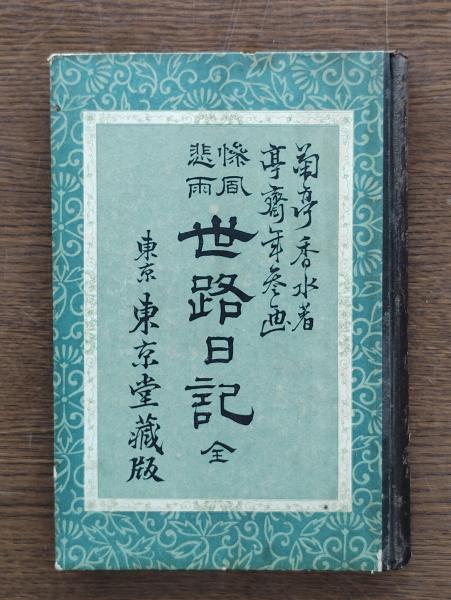 菊亭香水著
亭齋年參画
惨風
悲雨
世路日記 全
東京 東京堂藏版